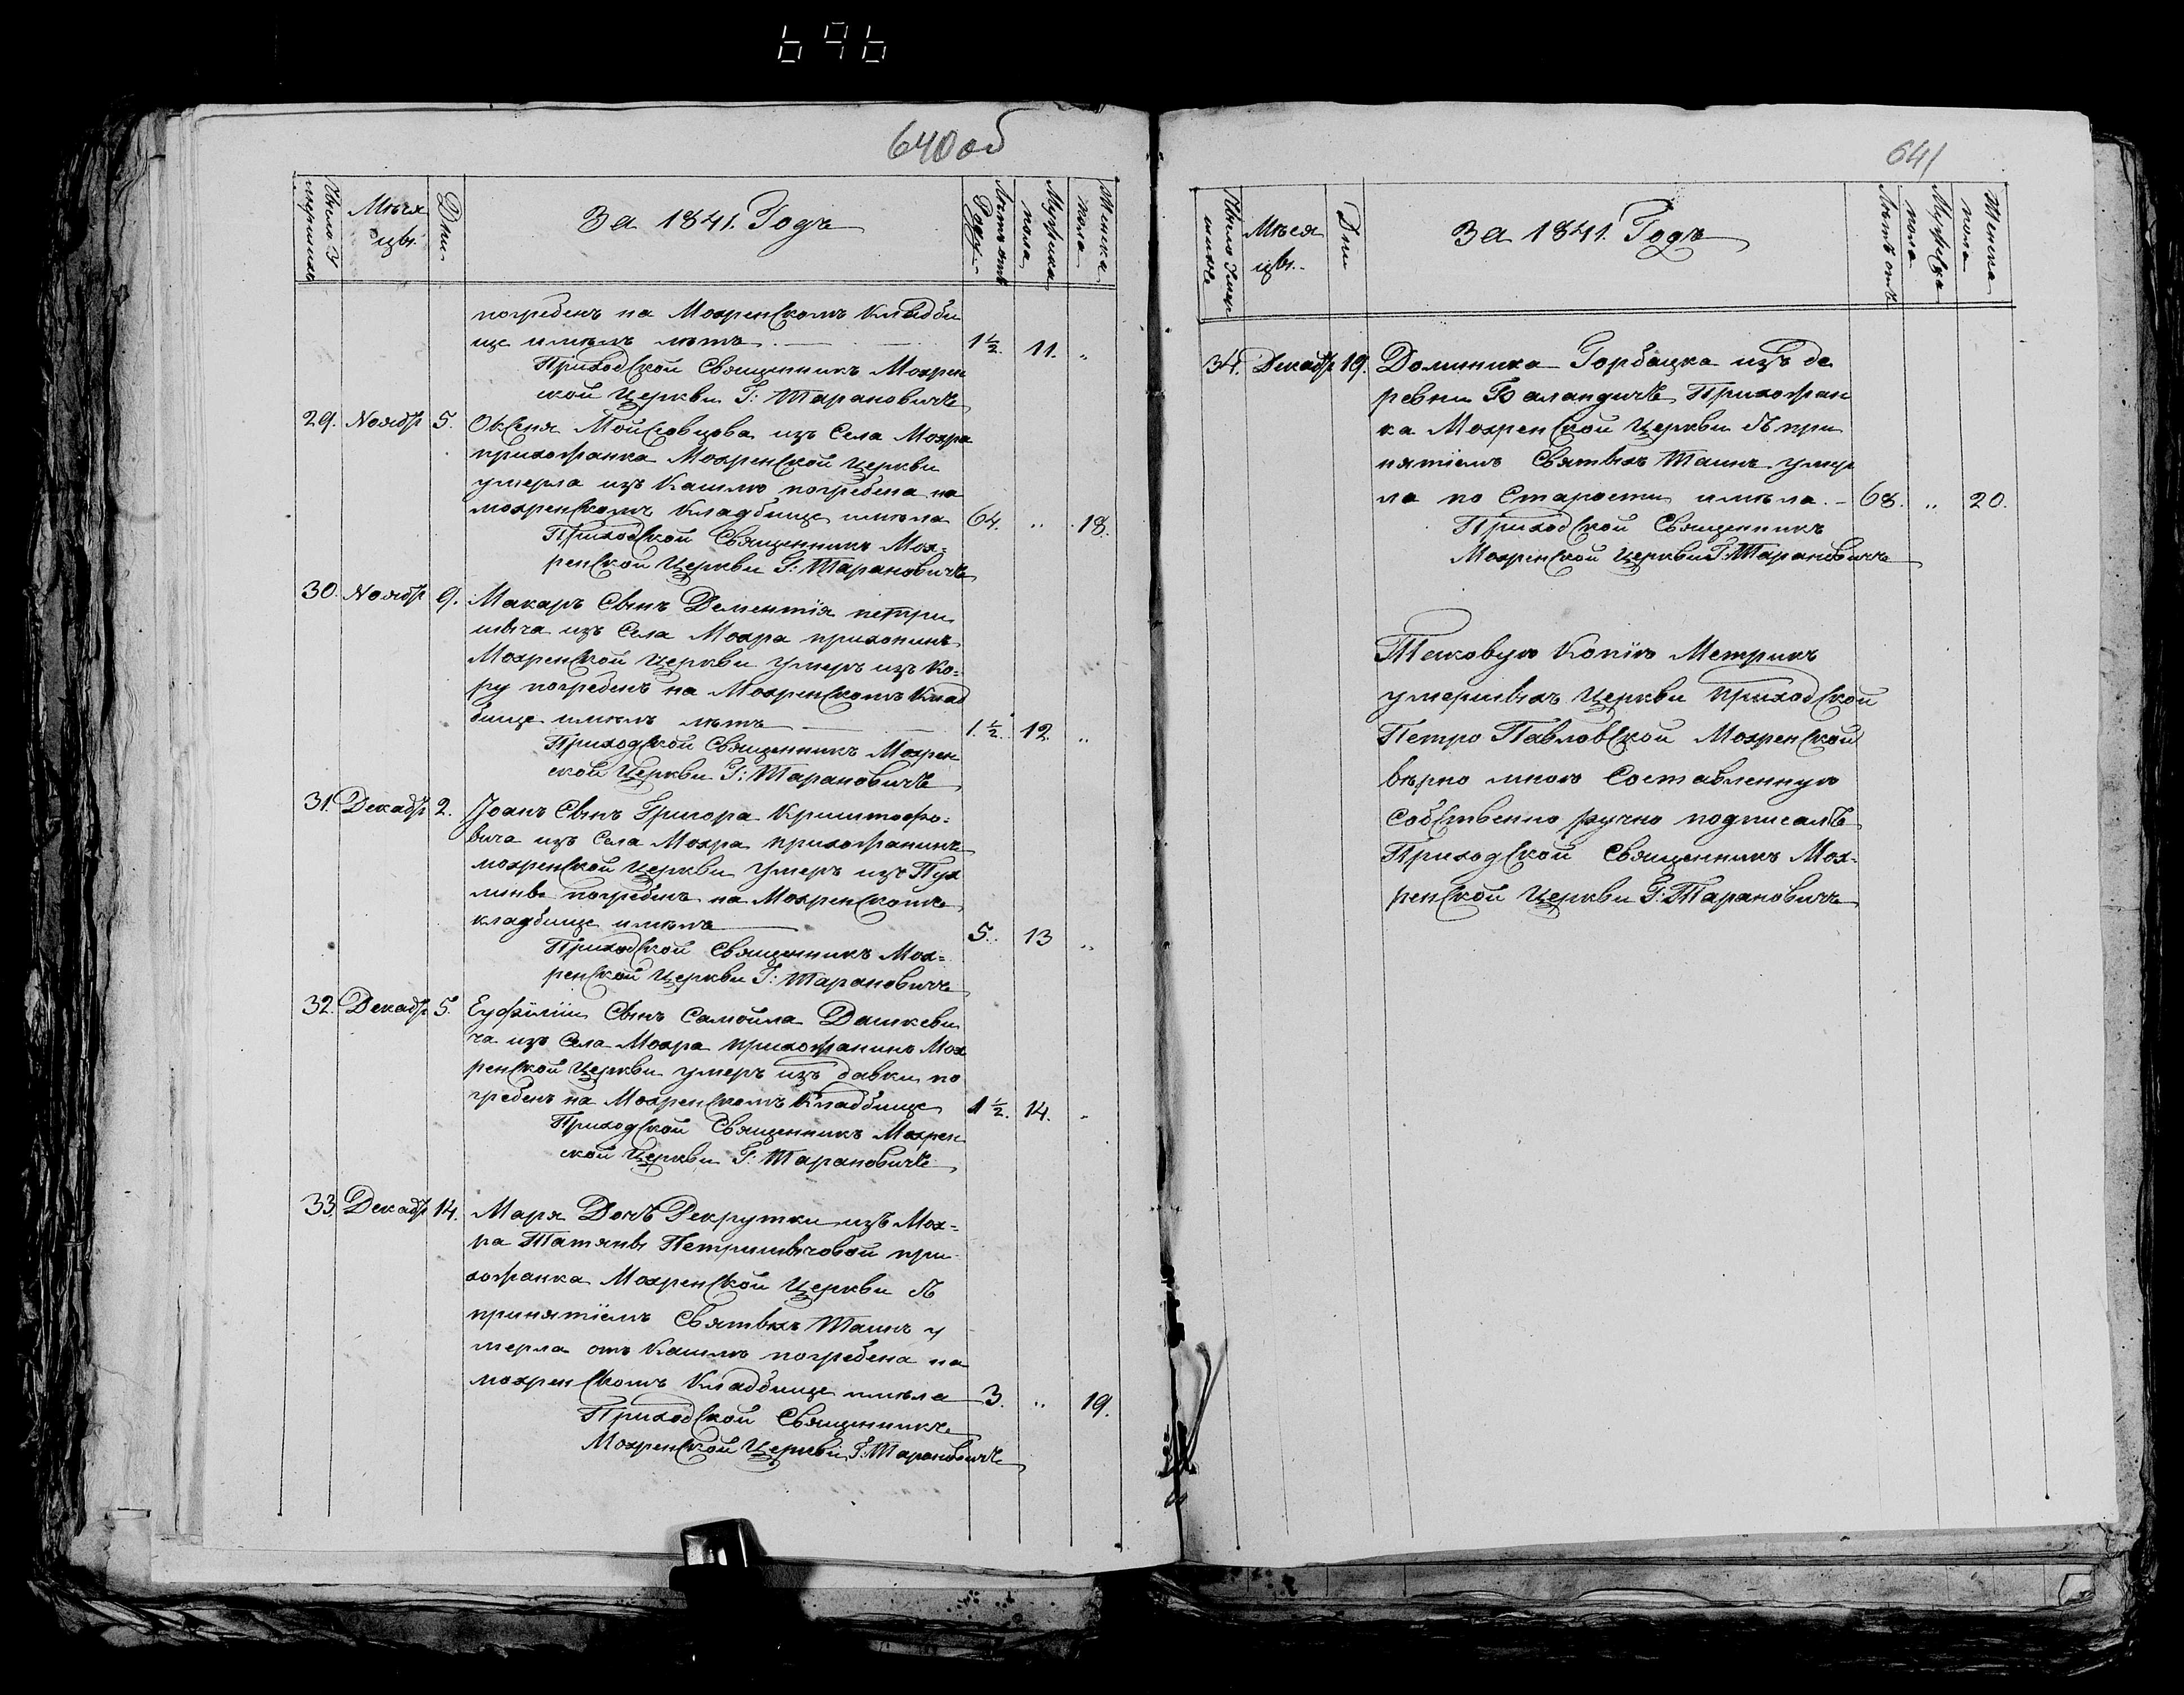 696
640 об
Число Умершихъ
Мѣся цы.
Дни
За 1841. Годъ
Лѣтъ отъ Роду.
Мужеска пола
Женска пола
погребенъ на Мохренскомъ Кладби
ще имѣлъ лѣтъ 1½. 11. „
Приходской Священникъ Мохрен
ской Церкви Г: Тарановичъ
29. Ноябр 5. Оксеня Мойсовцова изъ Села Мохра
прихожанка Мохренской Церкви
умерла изъ Кашлю погребена на
мохренскомъ Кладбище имѣла 64. „ 18.
Приходской Священникъ Мох=
ренской Церкви Г: Тарановичъ
30. Ноябр 9. Макаръ Сынъ Дементія петри
швича изъ Села Мохра прихожинъ
Мохренской Церкви умеръ изъ Ко=
ру погребенъ на Мохренскомъ Клад
бище имѣлъ лѣтъ 1.½. 12. „
Приходской Священникъ Мохрен
ской Церкви Г: Тарановичъ
31. Декабр 2. Іоанъ Сынъ Григора Криштофо=
вича изъ Села Мохра прихожанинъ
мохренской Церкви умеръ изъ Пух
лины погребенъ на Мохренскомъ
кладбище имѣлъ 5. 13 „
Приходской Священникъ Мох=
ренской Церкви Г: Тарановичъ
32. Декабр 5. Еуфімій Сынъ Самойла Дашкеви
ча изъ Села Мохра прихожанинъ Мох
ренской Церкви умеръ изъ давки по
гребенъ на Мохренскомъ Кладбище 1½. 14. „
Приходской Священникъ Мохрен
ской Церкви Г: Тарановичъ
33. Декабр 14. Маря Дочъ Рекрутки изъ Мох=
ра Татяны Петришвичовой при
хожанка Мохренской Церкви съ
принятіемъ Святыхъ Таинъ у
мерла отъ Кашлю погребена на
мохренскомъ Кладбище имѣла 3. „ 19.
Приходской Священникъ
Мохренской Церкви Г: Тарановичъ
641
Число Умер шихъ
Мѣся цы.
Дни
За 1841. Годъ
Лѣтъ отъ
Мужеска пола
Женска пола
34. Декабр 19. Доминика Горбацка изъ де
ревни Баландичъ Прихожан
ка Мохренской Церкви съ при
нятіемъ Святыхъ Таинъ умер
ла по Старости имѣла. 68. „ 20.
Приходской Священникъ
Мохренской Церкви Г: Тарановичъ
Таковую Копію Метрикъ
умершихъ Церкви приходской
Петро Павловской Мохренской
вѣрно мною Составленную
Собственно ручно подписалъ
Приходской Священникъ Мох=
ренской Церкви Г: Тарановичъ